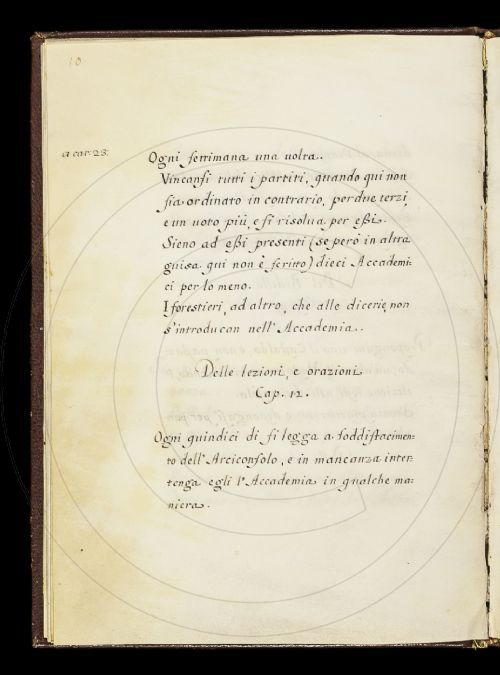 10
a car. 23.
Ogni settimana una uolta.
Vincansi tutti i partiti, quando qui non
sia ordinato in contrario, per due terzi,
e un uoto più, e si risolua per eßi.
Sieno ad eßi presenti (se però in altra
guisa qui non è scritto) dieci Accademi:
ci per lo meno.
I forestieri, ad altro, che alle dicerie, non
s'introducan nell'Accademia.
Delle lezioni, e orazioni
Cap. 12.
Ogni quindici dì si legga a soddisfacimen:
to dell'Arciconsolo, e in mancanza inter:
tenga egli l'Accademia in qualche ma:
niera.